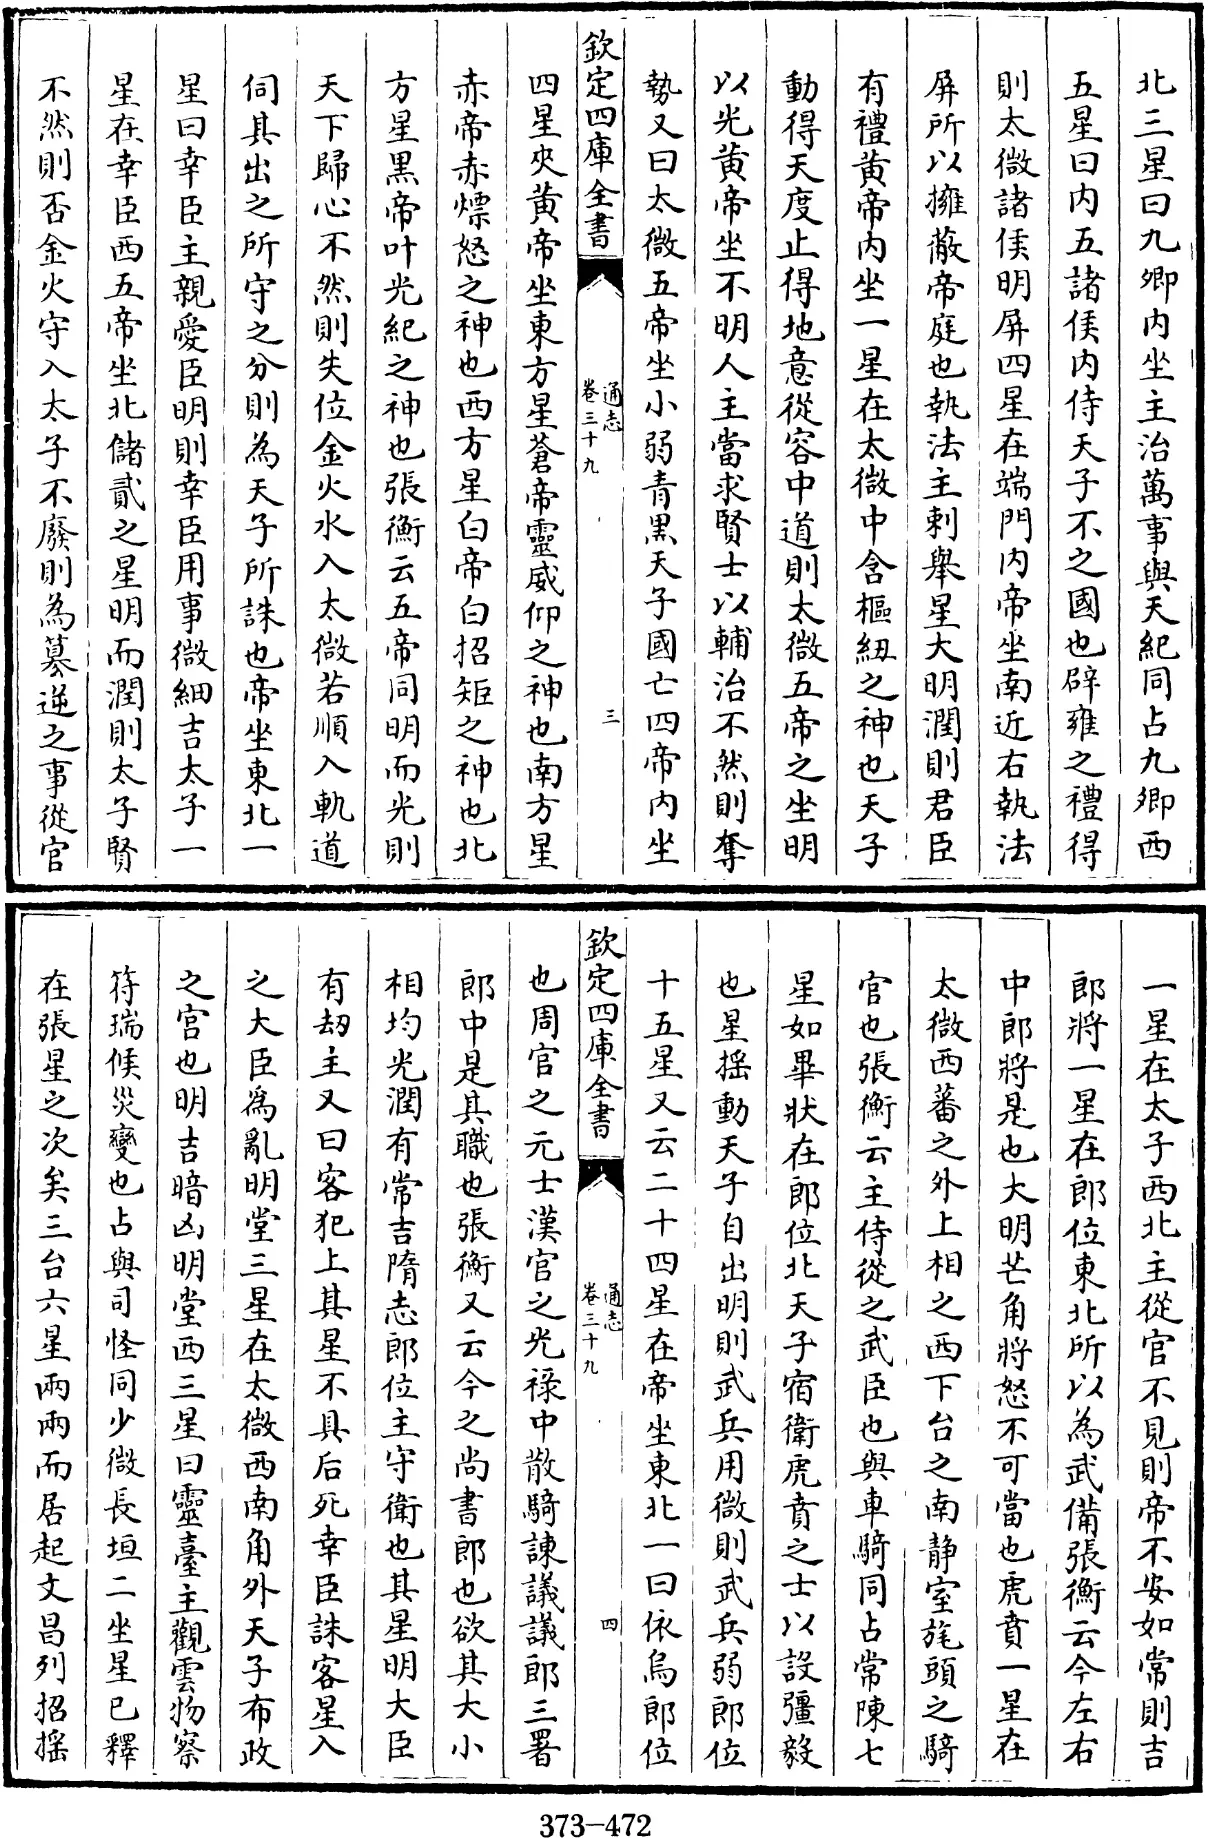 北三星曰九卿内坐主治萬事與天紀同占九卿西
五星曰内五諸侯内侍天子不之國也辟雍之禮得
則太微諸侯明屏四星在端門内帝坐南近右執法
屏所以擁蔽帝庭也執法主刺舉星大明潤則君臣
有禮黄帝内坐一星在太微中含樞紐之神也天子
動得天度止得地意從容中道則太微五帝之坐明
以光黄帝坐不明人主當求賢士以輔治不然則奪
勢又曰太微五帝坐小弱青黑天子國亡四帝内坐
欽定四庫全書
通志
卷三十九
三
四星夾黄帝坐東方星蒼帝靈威仰之神也南方星
赤帝赤熛怒之神也西方星白帝白招矩之神也北
方星黑帝叶光紀之神也張衡云五帝同明而光則
天下歸心不然則失位金火水入太微若順入軌道
伺其出之所守之分則為天子所誅也帝坐東北一
星曰幸臣主親愛臣明則幸臣用事微細吉太子一
星在幸臣西五帝坐北儲貳之星明而潤則太子賢
不然則否金火守入太子不廢則為簒逆之事從官
一星在太子西北主從官不見則帝不安如常則吉
郎將一星在郎位東北所以為武備張衡云今左右
中郎將是也大明芒角將怒不可當也虎賁一星在
太微西蕃之外上相之西下台之南静室旄頭之騎
官也張衡云主侍從之武臣也與車騎同占常陳七
星如畢狀在郎位北天子宿衛虎賁之士以設彊毅
也星揺動天子自出明則武兵用微則武兵弱郎位
十五星又云二十四星在帝坐東北一曰依烏郎位
欽定四庫全書
通志
卷三十九
四
也周官之元士漢官之光禄中散騎諫議議郎三署
郎中是其職也張衡又云今之尚書郎也欲其大小
相均光潤有常吉隋志郎位主守衛也其星明大臣
有刼主又曰客犯上其星不具后死幸臣誅客星入
之大臣為亂明堂三星在太微西南角外天子布政
之宫也明吉暗凶明堂西三星曰靈臺主觀雲物察
符瑞候災變也占與司怪同少微長垣二坐星已釋
在張星之次矣三台六星兩兩而居起文昌列招揺
373-472